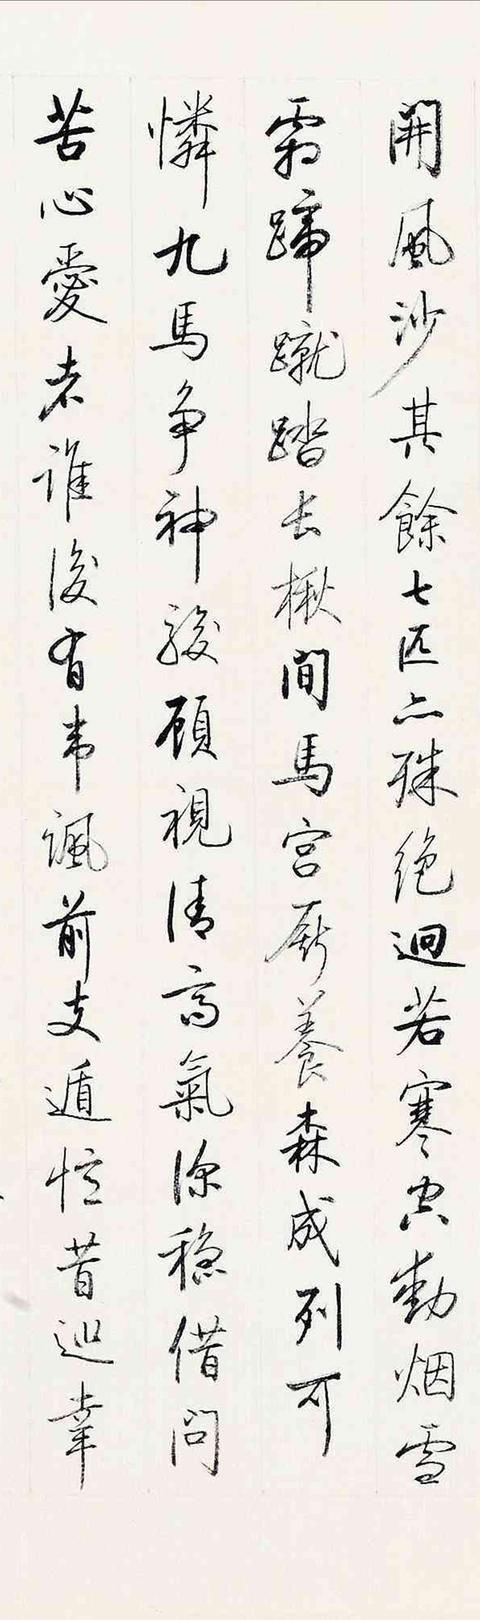 開風沙其餘七匹亦殊絕迥若寒空動烟雪
霜蹄蹴踏長楸間馬宮厮養森成列可
憐九馬争神駿顧視清高氣深穩借問
苦心愛者誰後有韋諷前支遁憶昔巡幸